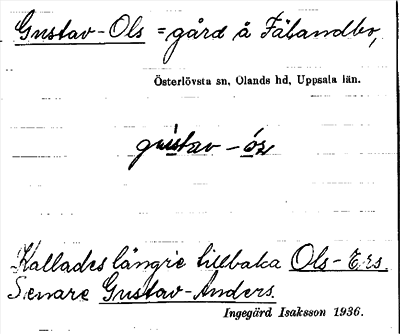 Gustav-Ols = gård å Fäbandbo,
Österlövsta sn, Olands hd, Uppsala län.
gústav - óz
Kallades längre tillbaka Ols-Ers.
Senare Gustav-Anders.
Ingegärd Isaksson 1936.